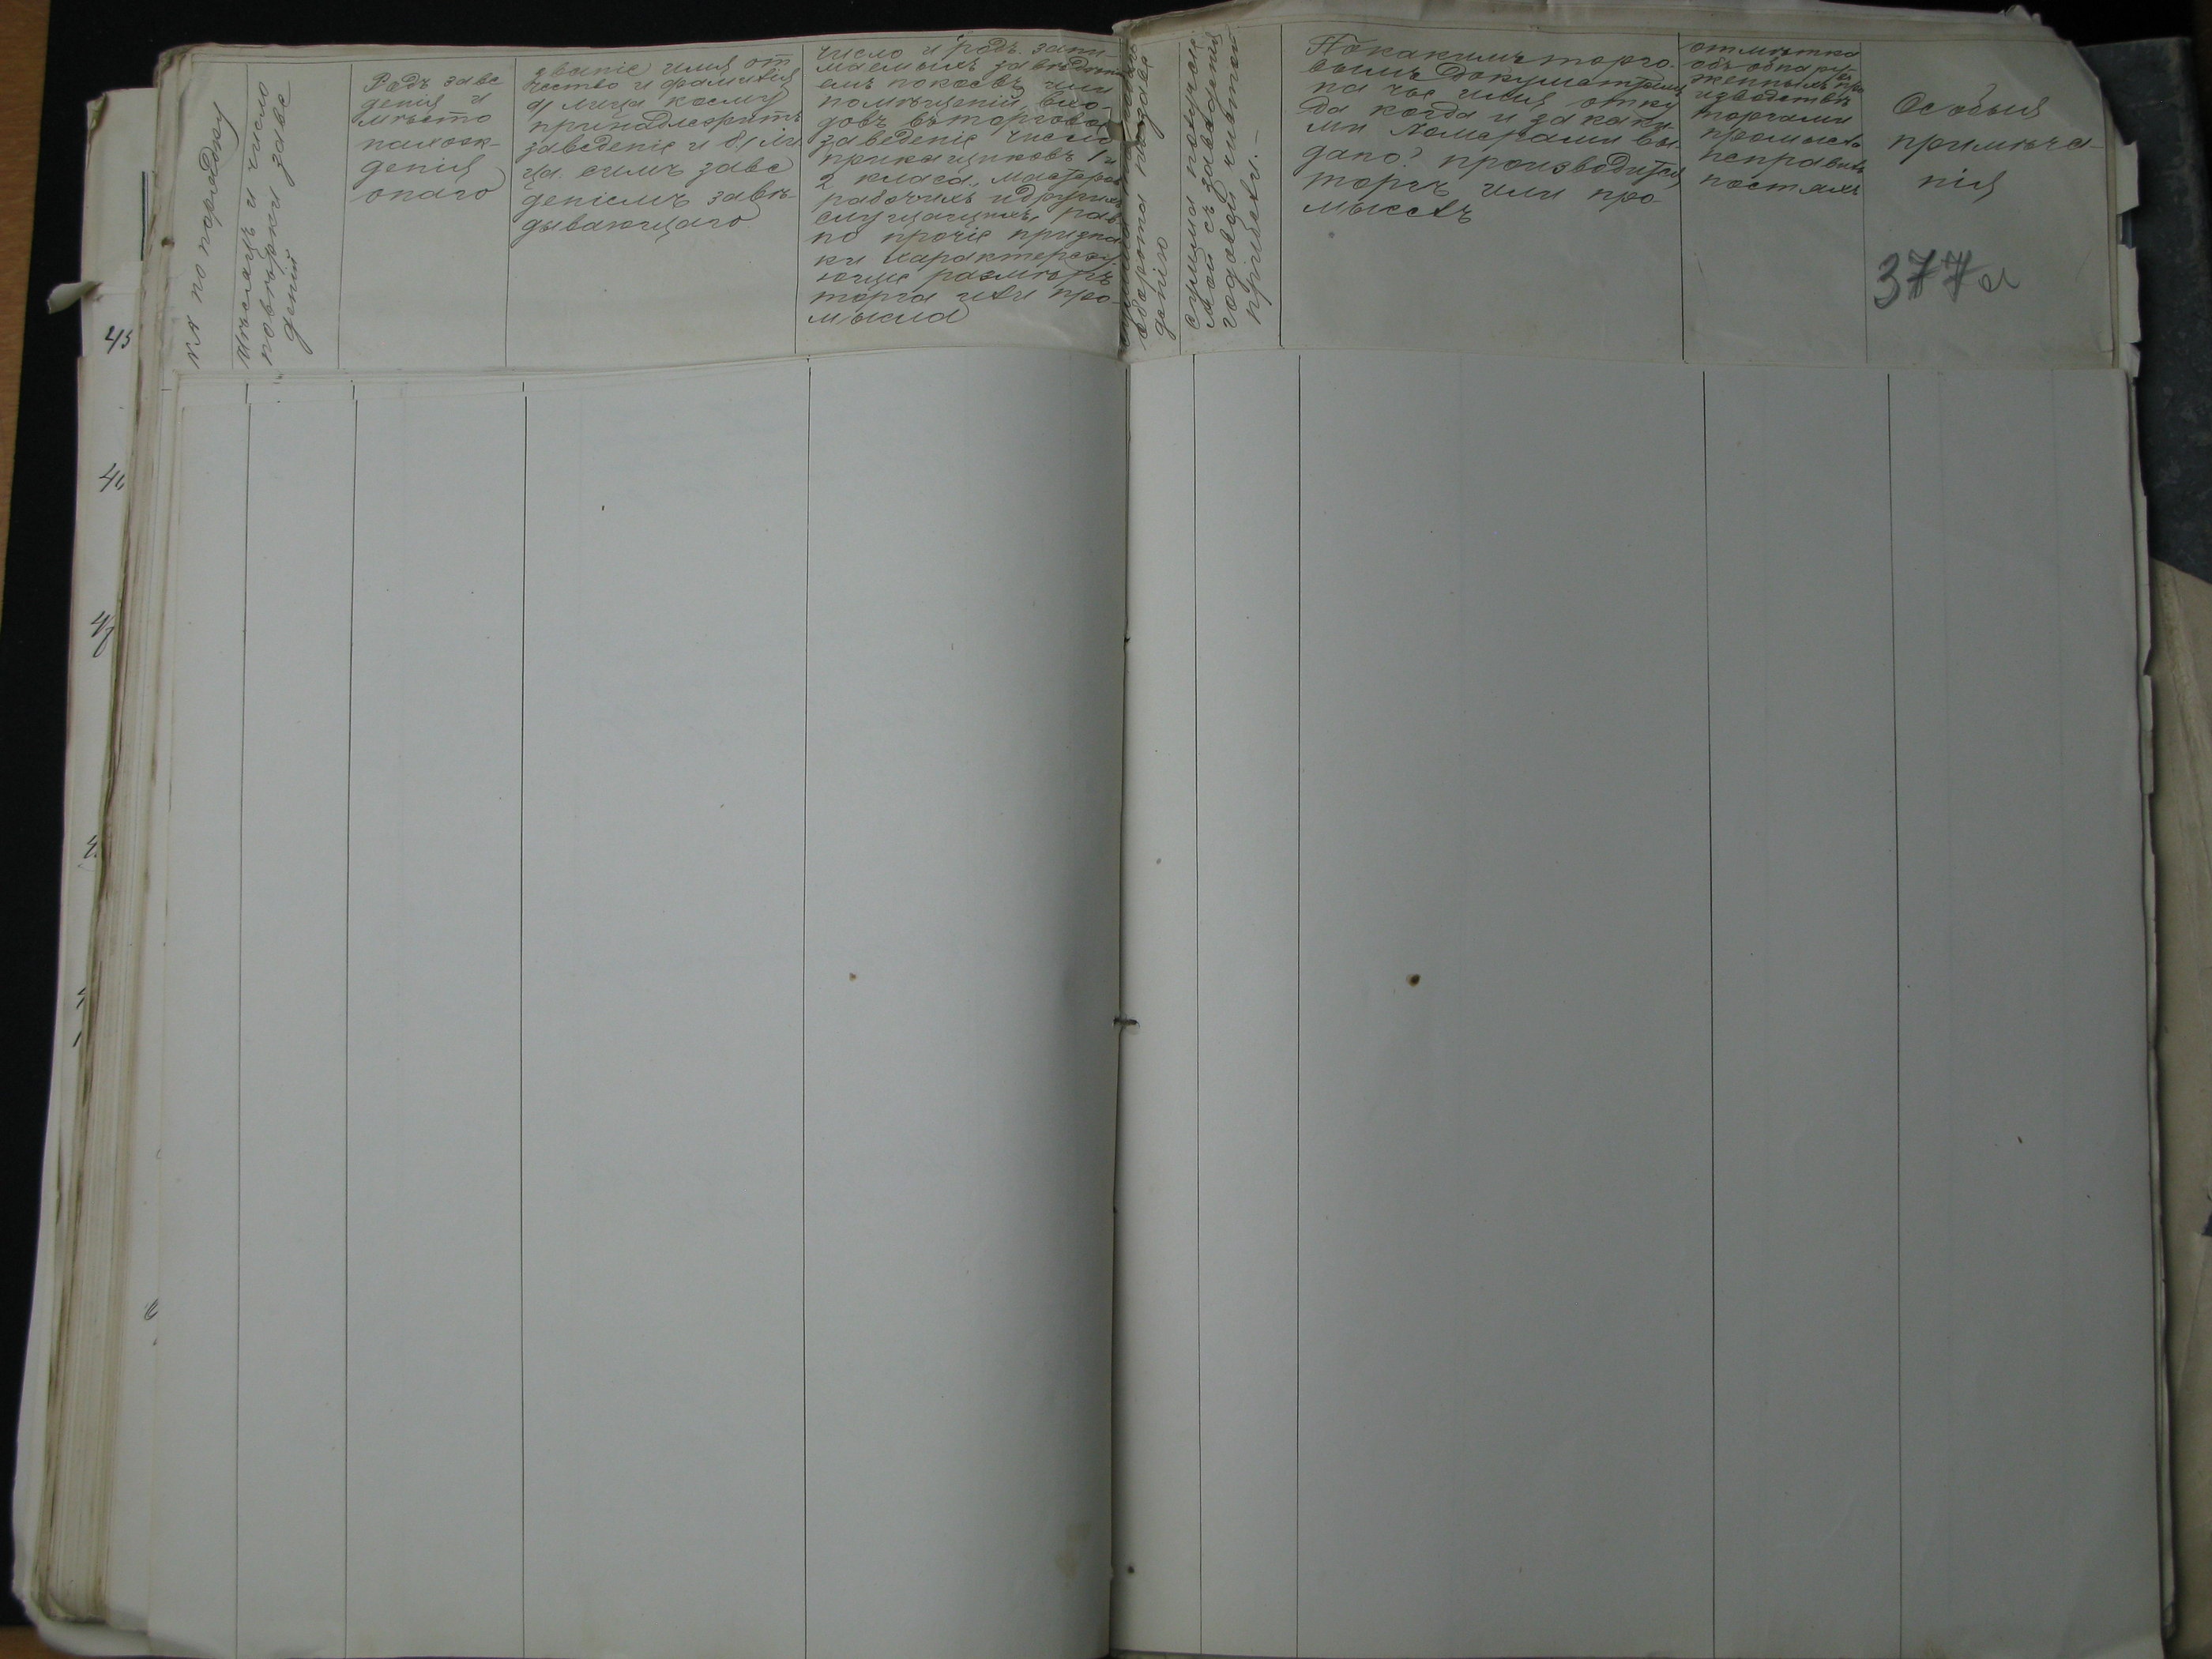 №№ по порядку
Мѣсяцъ и число
повѣрки заве
деній
Родъ заве
денія и
мѣсто
нахож-
денія
онаго
званіе имя от
чество и фамилія
а) лица коему
принадлежитъ
заведеніе и б) ли
ца симъ заве
деніемъ завѣ-
дывающаго
число и родъ зани
маемыхъ заведені
емъ покоевъ или
помѣщеній, вхо-
довъ въ торговое
заведеніе число
прикащиковъ 1 и
2 класа, мастеровъ
рабочихъ и другихъ
служащихъ, рав
но прочіе призна
ки характеризу
ющіе размѣръ
торга или про-
мысла
оборота по заве
денію
сумма получае
мой съ заведенія
годовой чистой
прибыли.-
По какимъ торго-
вымъ документамъ
на чье имя отку
да когда и за каки-
ми номерами вы-
дано? производится
торгъ или про-
мыселъ
отмѣтка
объ обнару
женныхъ при
изводствѣ
торгами
промысла
неправиль
ностяхъ
Особыя
примѣча-
нія
377а
45